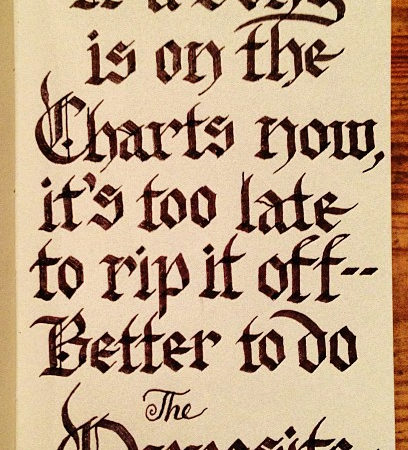 is on the
Charts now,
it's too late
to rip it off--
Better to do
The
Opposite